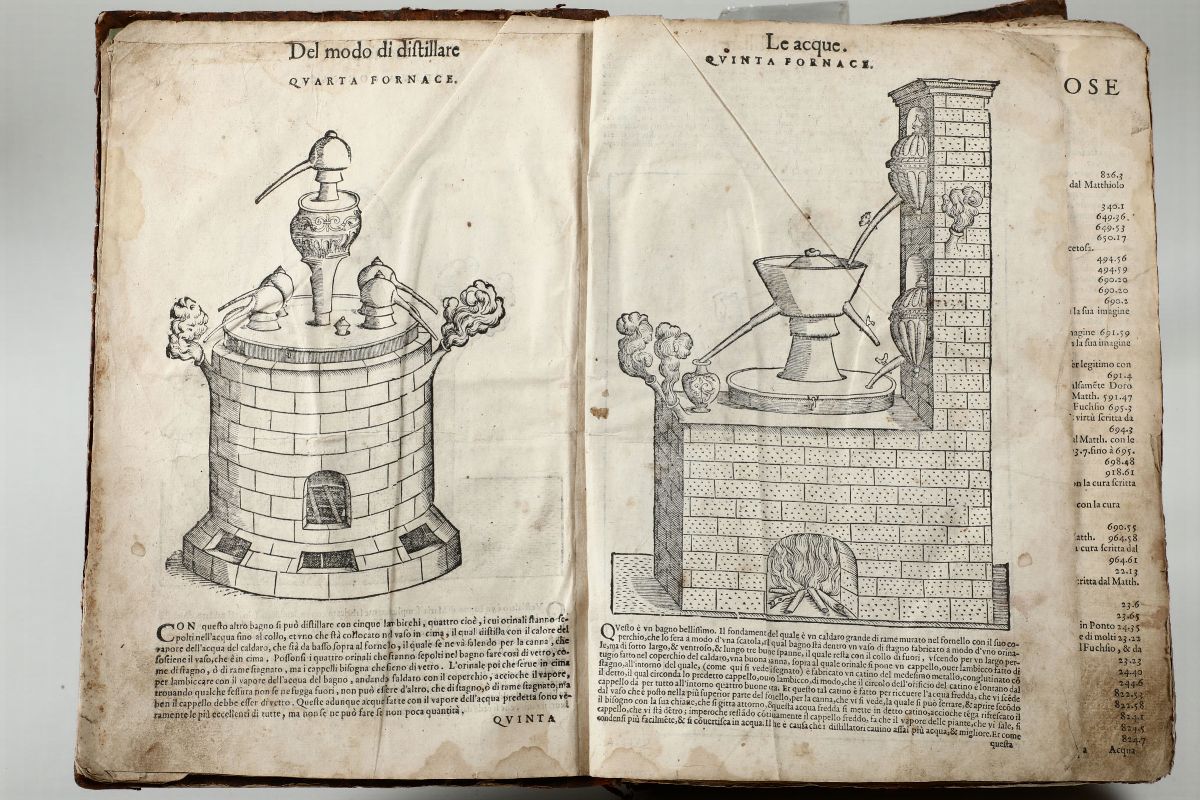 Del modo di distillare
QVARTA FORNACE.
CON questo altro bagno si può distillare con cinque lambicchi, quattro cioè, i cui orinali stanno se-
polti nell'acqua sino al collo, et vno che stà collocato nel vaso in cima, il qual distilla con il calore del
vapore dell'acqua del caldaro, che stà da basso sopra al fornelo, il quale se ne và salendo per la canna, che
sostiene il vaso, che è in cima. Possonsi i quattro orinali che stanno sepolti nel bagno fare così di vetro, co-
me di stagno, ò di rame stagnato, ma i cappelli bisogna che sieno di vetro. L'orinale poi che serue in cima
per lambiccare con il vapore dell'acqua del bagno, andando saldato con il coperchio, accioche il vapore,
trouando qualche fessura non se ne fugga fuori, non può essere d'altro, che di stagno, ò di rame stagnato, ma
ben il cappello debbe esser di vetro. Queste adunque acque fatte con il vapore dell'acqua predetta sono ve-
ramente le più eccellenti di tutte, ma non se ne può fare se non poca quantità.
QVINTA
Le acque.
QVINTA FORNACE.
QVesto è vn bagno bellissimo. Il fondamento del quale è vn caldaro grande di rame murato nel fornello con il suo co-
perchio, che lo serra à modo d'vna scatola, nel qual bagno stà dentro vn vaso di stagno fabricato a modo d'vno orina-
le, ma di sotto largo, & ventroso, & lungo tre buone spanne, il quale resta con il collo di fuori, vscendo per vn largo per-
tugio fatto nel coperchio del caldaro, vna buona spanna, sopra al quale orinale si pone vn cappello, ouer lambicco fatto di
stagno, all'intorno del quale, (come qui si vede disegnato) è fabricato vn catino del medesimo metallo, conglutinato
il detto, il qual circonda lo predetto cappello, ouo lambicco, di modo, che il circolo dell'officio del catino è lontano dal
cappello da per tutto all'intorno quattro buone dita. Et questo tal catino è fatto per riceuere l'acqua fredda, che vi scède
dal vaso che è posto nella più superior parte del fornello, per la canna, che vi si vede, la quale si può serrare, & aprire secōdo
il bisogno con la sua chiaue, che si gitta attorno, & questa acqua fredda si mette in detto catino, accioche tēga rifrescato il
cappello, che vi stà dētro; imperoche restādo cōtinuamente il cappello freddo, fa che il vapore delle piante, che vi sale, si
condensi più facilmēte, & si cōuertisca in acqua. Il che è causa che i distillatori cauino assai più acqua, & migliore. Et come
questa
OSE
826.3
dal Matthiolo
340.1
649.36.
649.53
650.17
cetosa.
494.56
494.59
690.20
690.20
690.2
la sua imagine
magine 691.59
la sua imagine
er legitimo con
691.4
alsamēte Doro
Matth. 591.47
Fuchsio 695.3
virtù scritta da
694.3
al Matth. con le
3.7. sino à 695.
698.48
918.61
on la cura scritta
con la cura
690.55
atth. 964.58
cura scritta dal
964.61
22.13
critta dal Matth.
23.6
23.65
in Ponto 24.35
e di molti 23.22
l Fuchsio, & da
23.23
24.40
24.46
822.53
822.58
824.1
824.5
824.7
a Acqua